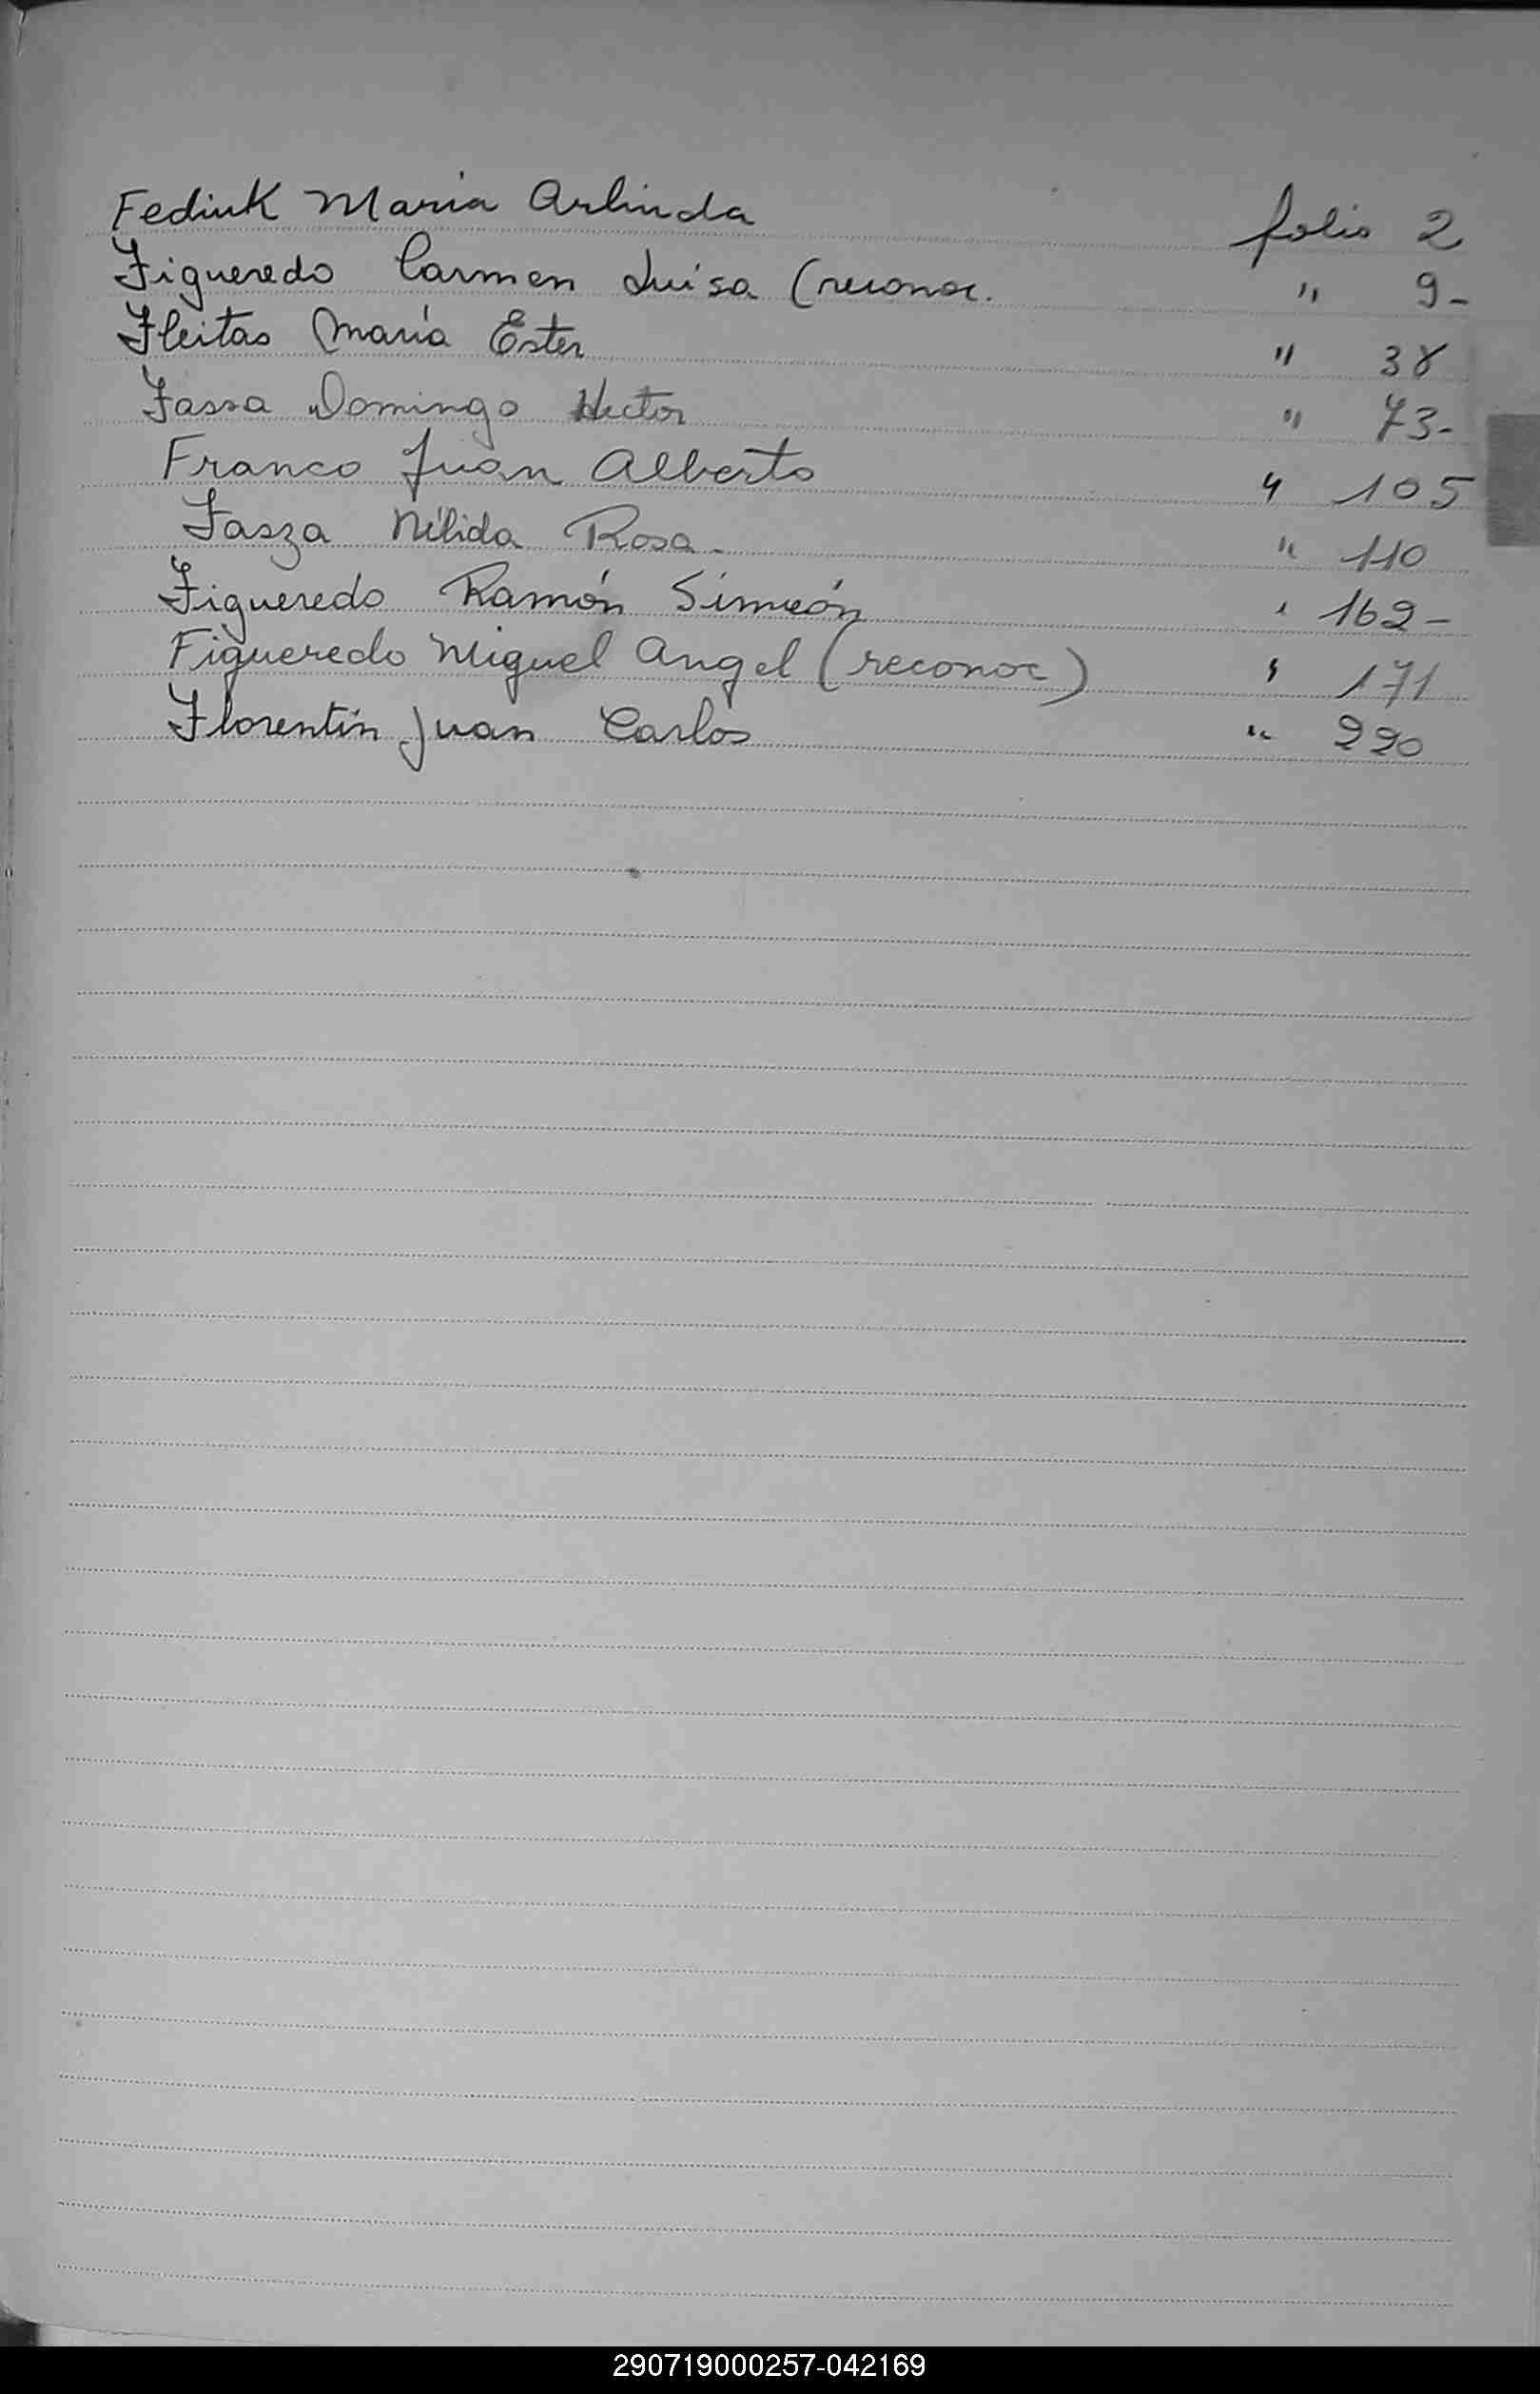 Fediuk Maria Arlinda folio 2
Figueredo Carmen Luisa (reconoc. " 9-
Fleitas María Ester " 38
Fassa Domingo Hector " 73-
Franco Juan Alberto " 105
Fasza Nélida Rosa - " 110
Figueredo Ramón Simeón " 162-
Figueredo Miguel Angel (reconoc) " 171
Florentín Juan Carlos " 220
290719000257-042169